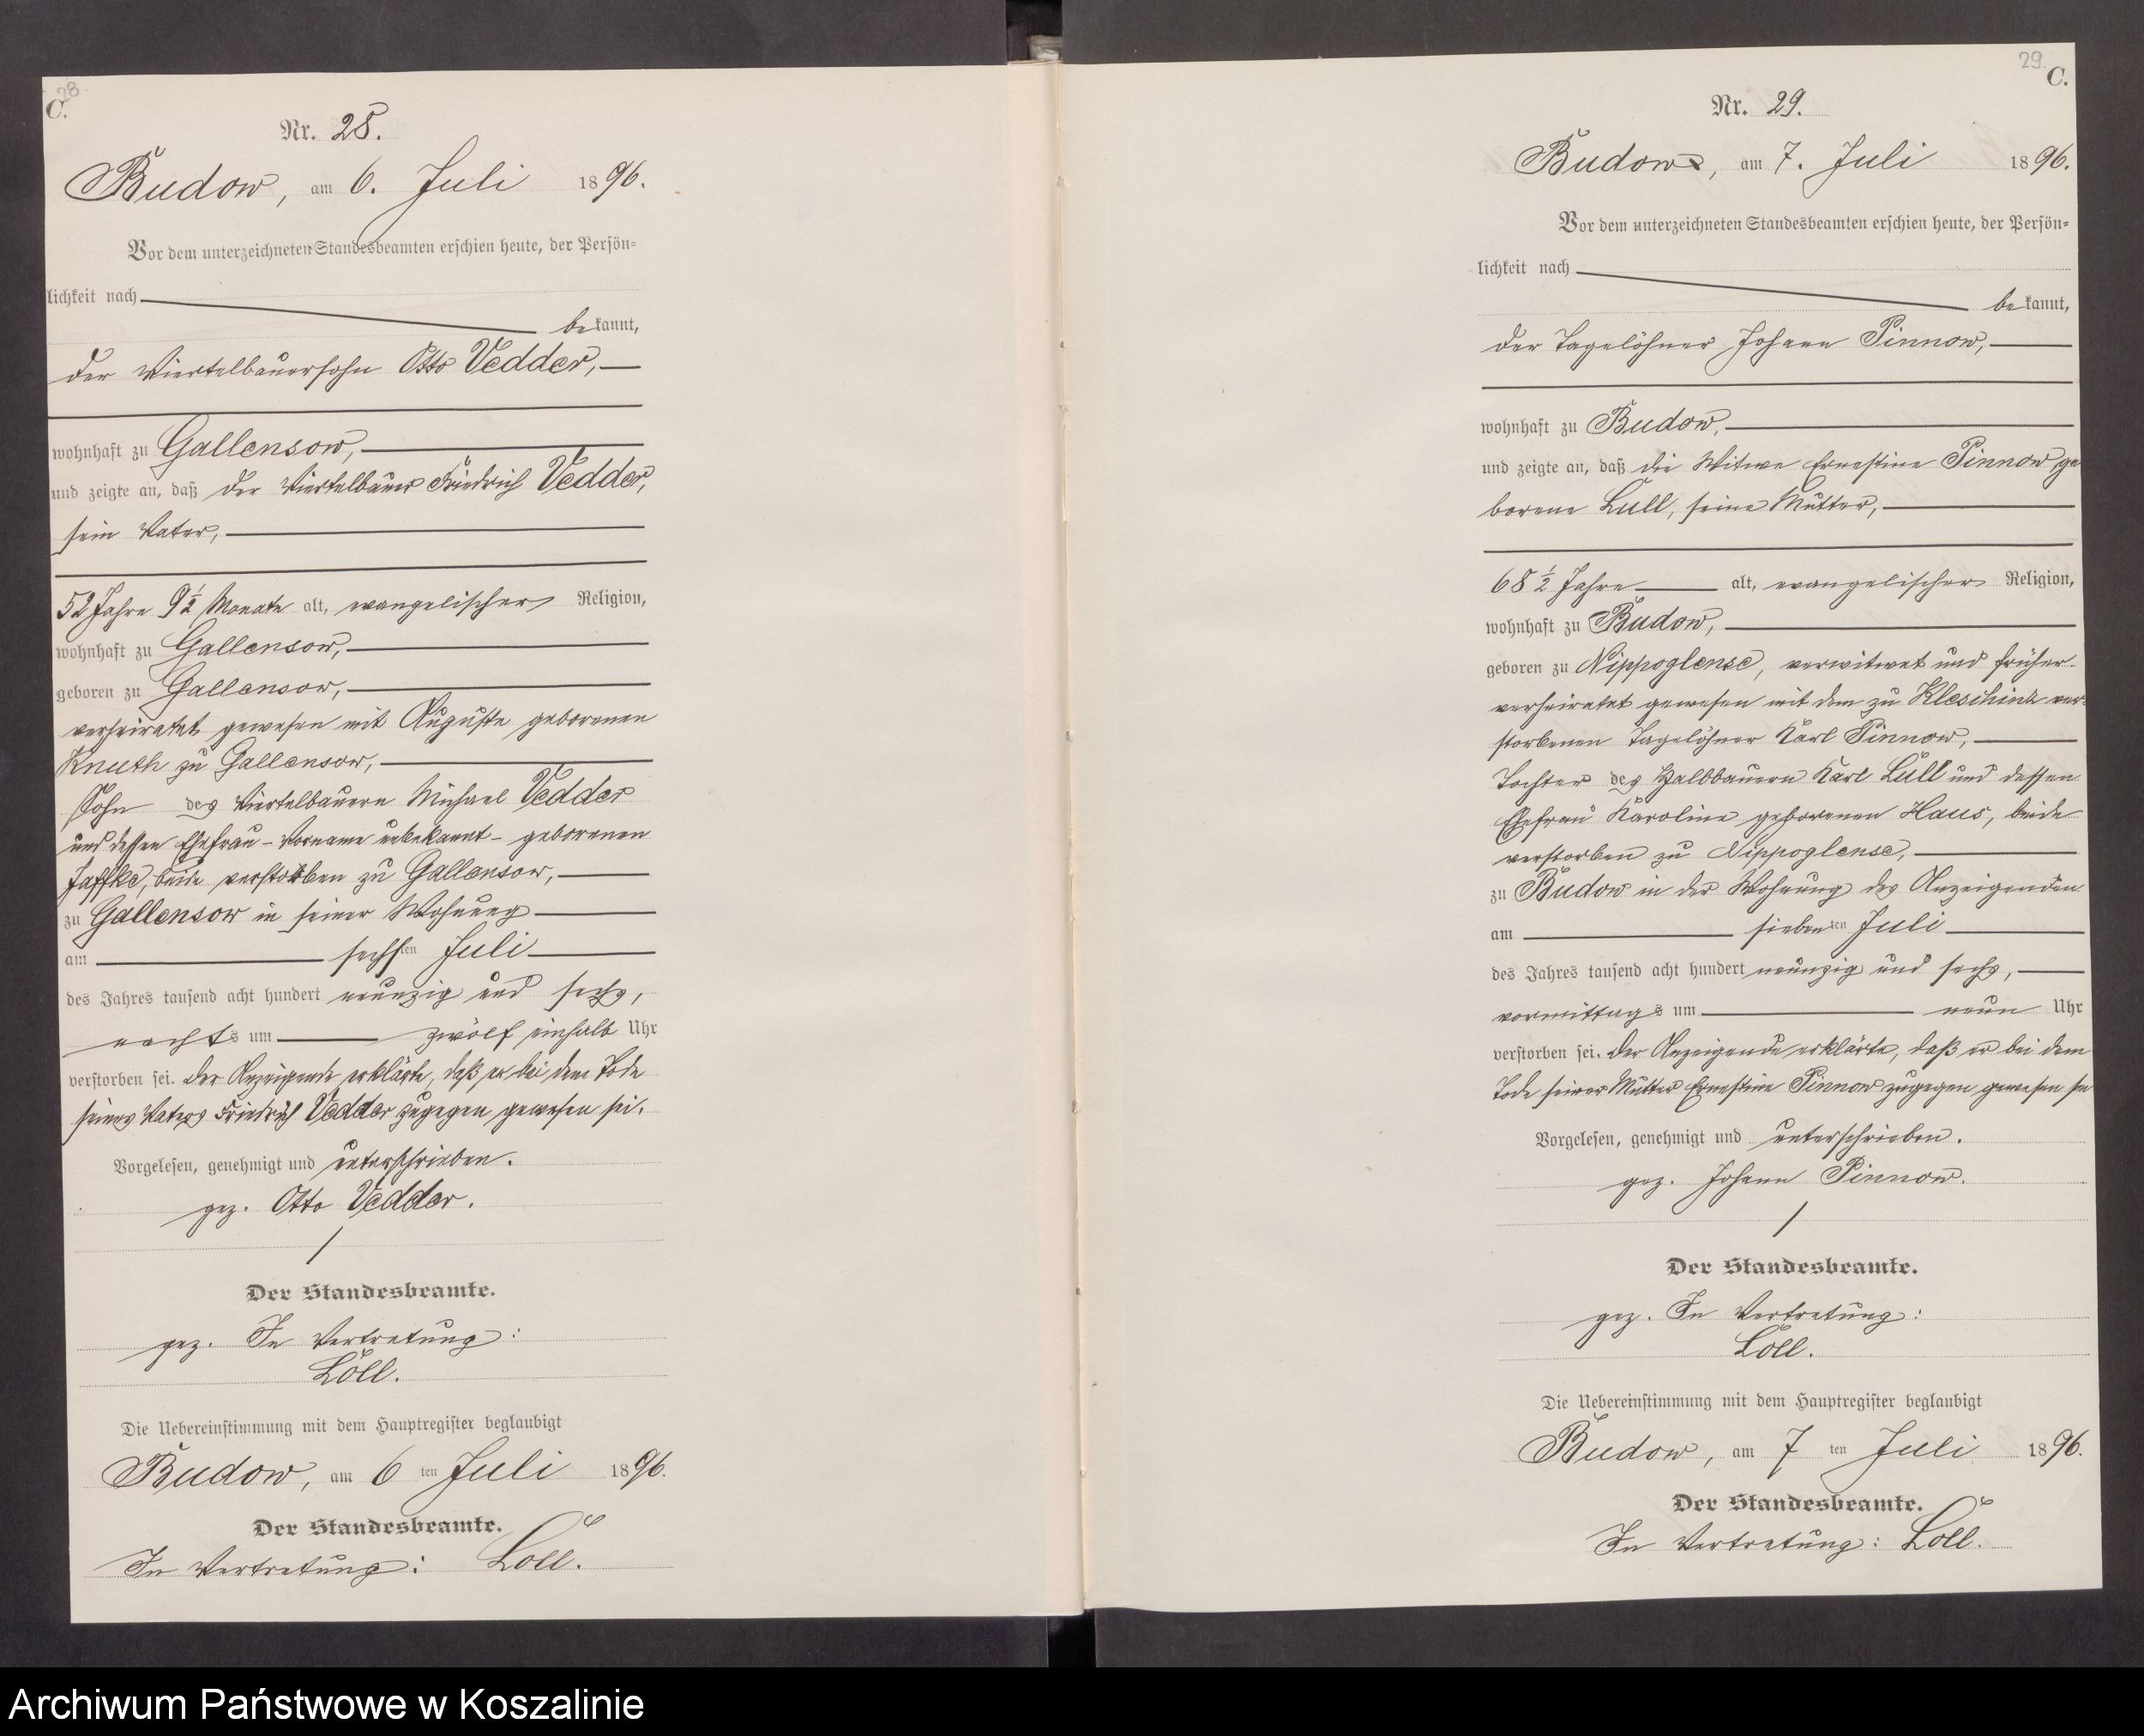 28
C.
Nr. 28.
Budow, am 6. Juli 1896.
Vor dem unterzeichneten Standesbeamten erschien heute, der Persön-
lichkeit nach
bekannt,
der Viertelbauersohn Otto Vedder,
wohnhaft zu Gallensow,
und zeigte an, daß der Viertelbauer Friedrich Vedder,
sein Vater,
52 Jahre 9½ Monate alt, evangelischer Religion,
wohnhaft zu Gallensow,
geboren zu Gallensow,
verheiratet gewesen mit Auguste geborenen
Knuth zu Gallensow,
Sohn des Viertelbauern Michael Vedder
und dessen Ehefrau - Vorname unbekannt - geborenen
Jaffke, beide verstorben zu Gallensow,
zu Gallensow in seiner Wohnung
am sechsten Juli
des Jahres tausend acht hundert neunzig und sechs,
nachts um zwölf einhalb Uhr
verstorben sei. Der Anzeigende erklärte, daß er bei dem Tode
seines Vaters Friedrich Vedder zugegen gewesen sei.
Vorgelesen, genehmigt und unterschrieben.
gez. Otto Vedder.
Der Standesbeamte.
gez. In Vertretung:
Löll.
Die Uebereinstimmung mit dem Hauptregister beglaubigt
Budow, am 6 ten Juli 1896.
Der Standesbeamte.
In Vertretung: Löll.
29.
C.
Nr. 29.
Budow, am 7. Juli 1896.
Vor dem unterzeichneten Standesbeamten erschien heute, der Persön-
lichkeit nach
bekannt,
der Tagelöhner Johann Pinnow,
wohnhaft zu Budow,
und zeigte an, daß die Witwe Ernestine Pinnow, ge
borene Lüll, seine Mutter,
68 ½ Jahre alt, evangelischer Religion,
wohnhaft zu Budow,
geboren zu Nippoglense, verwitwet und früher
verheiratet gewesen mit dem zu Kleschinz ver-
storbenen Tagelöhner Karl Pinnow,
Tochter des Halbbauern Karl Lüll und dessen
Ehefrau Karoline geborenen Haus, beide
verstorben zu Nippoglense,
zu Budow in der Wohnung des Anzeigenden
am siebenten Juli
des Jahres tausend acht hundert neunzig und sechs,
vormittags um neun Uhr
verstorben sei. Der Anzeigende erklärte, daß er bei dem
Tode seiner Mutter Ernestine Pinnow zugegen gewesen sei
Vorgelesen, genehmigt und unterschrieben.
gez. Johann Pinnow.
Der Standesbeamte.
gez. In Vertretung:
Löll.
Die Uebereinstimmung mit dem Hauptregister beglaubigt
Budow, am 7 ten Juli 1896.
Der Standesbeamte.
In Vertretung: Löll.
Archiwum Państwowe w Koszalinie